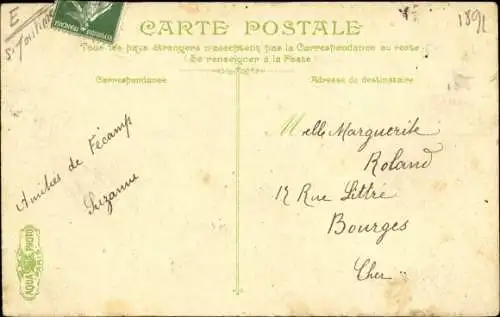 E
1891
CARTE POSTALE
Tous les pays étrangers n'acceptent pas la Correspondance au recto
(Se renseigner à la Poste)
Correspondance
Adresse du destinataire
Amitiés de Fécamp
Suzanne
Melle Marguerite
Roland
12 Rue Littré
Bourges
Cher
AQUA PHOTO